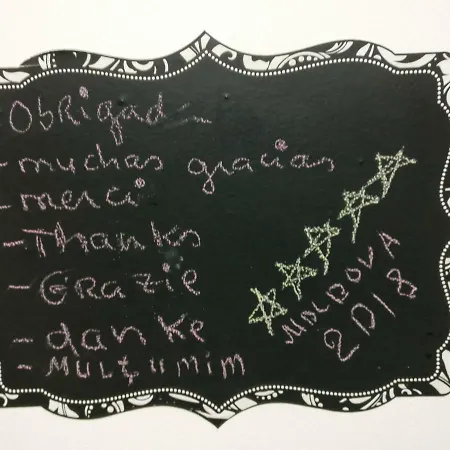 - Obrigad
- muchas gracias
- merci
- Thanks
- GRAZIE
- danke
- MULȚUMIM
MOLDOVA
2018